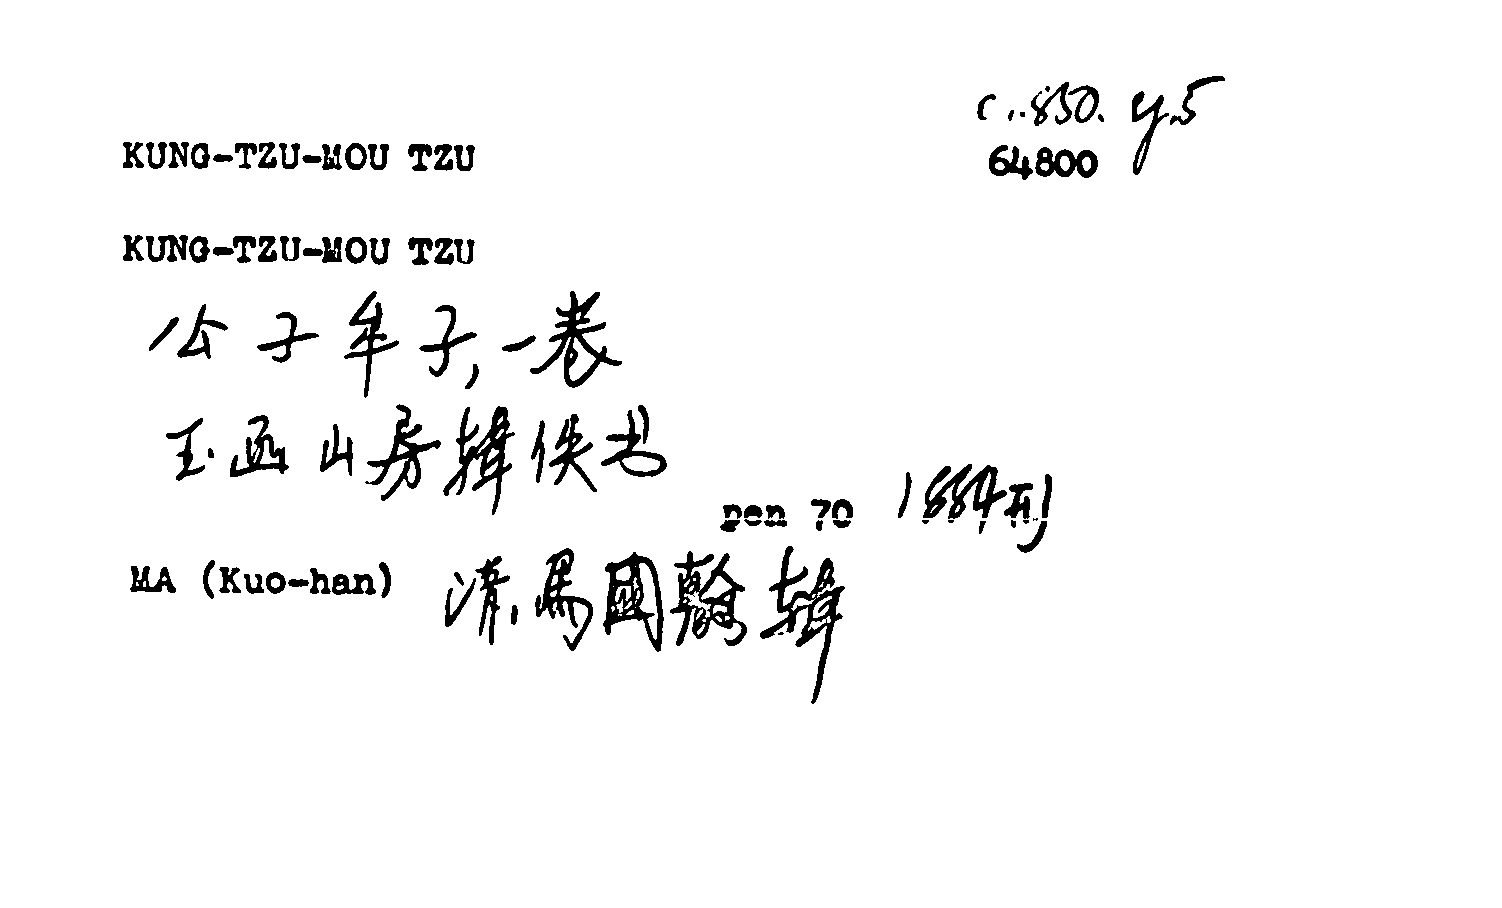 c..850. y.5
KUNG-TZU-MOU TZU
64800
KUNG-TZU-MOU TZU
公子牟子,一卷
玉函山房輯佚书
pen 70 1884刊
MA (Kuo-han) 清.馬國翰輯